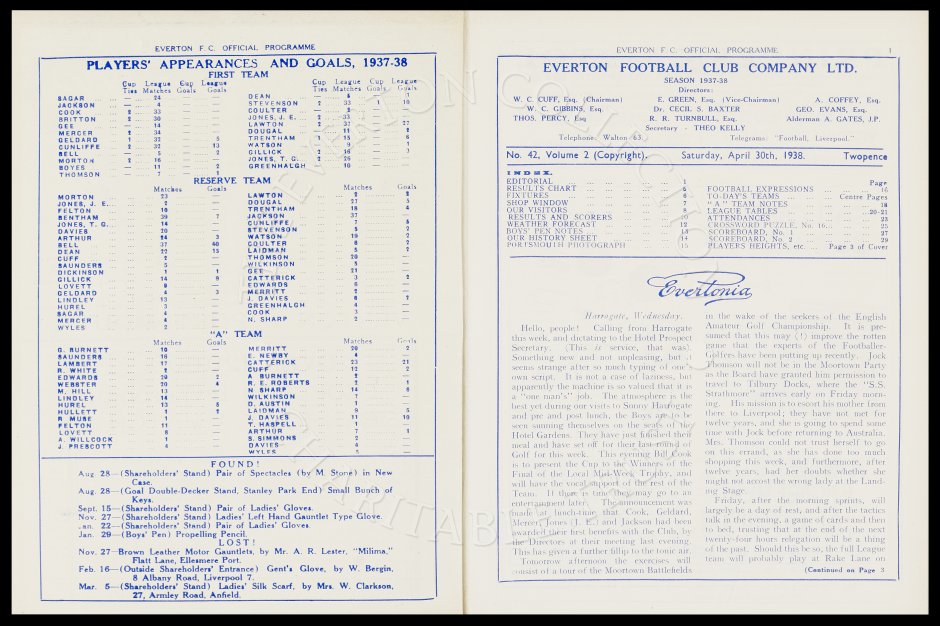 EVERTON F.C. OFFICIAL PROGRAMME
PLAYERS' APPEARANCES AND GOALS, 1937-38
FIRST TEAM
Cup Ties League Matches Cup Goals League Goals
SAGAR — 24 — —
JACKSON — 4 — —
COOK 2
BRITTON 2 30 — —
GEE — 14 — —
MERCER 2 34
GELDARD 1 32
CUNLIFFE 2 32 13
BELL — 5 2
MORTON 2 16 — —
BOYES — 11 2
THOMSON — 7 1
Cup Ties League Matches Cup Goals League Goals
DEAN
STEVENSON 2 33 1 10
COULTER
JONES, J. E. 2 33
LAWTON 2 37
DOUGAL — 11 2
TRENTHAM 1 15 6
WATSON — 9 1
GILLICK 2 16 3
JONES, T. G. 2 26
GREENHALGH — 10
RESERVE TEAM
Matches Goals
MORTON 23 —
JONES, J. E. 2 —
FELTON 10 —
BENTHAM 39 7
JONES, T. G. 14 —
DAVIES 20 —
ARTHUR 14 3
BELL 37 40
DEAN 15
CUFF 2 —
SAUNDERS 5 —
DICKINSON 1 1
GILLICK 14 9
LOVETT
GELDARD 4 3
LINDLEY 13 —
HUREL 3 —
SAGAR 4 —
MERCER 4 —
WYLES 2 —
Matches Goals
LAWTON 2
DOUGAL 27
TRENTHAM 18 4
JACKSON 37 —
CUNLIFFE 7 5
STEVENSON 5 2
WATSON 19 2
COULTER 6 2
LAIDMAN 5 2
THOMSON 20 —
WILKINSON 5 —
GEE 21 —
CATTERICK 3 2
EDWARDS 6 —
MERRITT 2 —
J. DAVIES 6 2
GREENHALGH 4 —
COOK 3 —
N. SHARP 2 —
"A" TEAM
Matches Goals
G. BURNETT 10 —
SAUNDERS 16 —
LAMBERT 17 —
R. WHITE 2 —
EDWARDS 19 2
WEBSTER 20 4
M. HILL 13 —
LINDLEY 14 —
HUREL 13 5
HULLETT 1 2
R. MUSE
FELTON 11 —
LOVETT
A. WILLCOCK 1 —
J. PRESCOTT
Matches Goals
MERRITT 20 2
E. NEWBY 4 —
CATTERICK 23 21
CUFF 12 2
A. BURNETT 2 —
R. E. ROBERTS 2 1
N. SHARP 14 6
WILKINSON 7 —
D. AUSTIN 1 —
LAIDMAN 8 5
J. DAVIES 11 10
T. HASPELL 1 —
ARTHUR 7 1
S. SIMMONS 2 —
DAVIES
WYLES
FOUND!
Aug. 28—(Shareholders' Stand) Pair of Spectacles (by M. Stone) in New
Case.
Aug. 28—(Goal Double-Decker Stand, Stanley Park End) Small Bunch of
Keys.
Sept. 15—(Shareholders' Stand) Pair of Ladies' Gloves.
Nov. 27—(Shareholders' Stand) Ladies' Left Hand Gauntlet Type Glove.
Jan. 22—(Shareholders' Stand) Pair of Ladies' Gloves.
Jan. 29—(Boys' Pen) Propelling Pencil.
LOST!
Nov. 27—Brown Leather Motor Gauntlets, by Mr. A. R. Lester, "Milima,"
Flatt Lane, Ellesmere Port.
Feb. 16—(Outside Shareholders' Entrance) Gent's Glove, by W. Bergin,
8 Albany Road, Liverpool 7.
Mar. 5—(Shareholders' Stand) Ladies' Silk Scarf, by Mrs. W. Clarkson,
27, Armley Road, Anfield.
EVERTON F.C. OFFICIAL PROGRAMME 1
EVERTON FOOTBALL CLUB COMPANY LTD.
SEASON 1937-38
Directors:
W. C. CUFF, Esq. (Chairman) E. GREEN, Esq. (Vice-Chairman) A. COFFEY, Esq.
W. C. GIBBINS, Esq. Dr. CECIL S. BAXTER GEO. EVANS, Esq.
THOS. PERCY, Esq R. R. TURNBULL, Esq. Alderman A. GATES, J.P.
Secretary - THEO KELLY
Telephone: Walton 63. Telegrams: "Football, Liverpool."
No. 42, Volume 2 (Copyright). Saturday, April 30th, 1938. Twopence
INDEX.
EDITORIAL 1
RESULTS CHART 6
FIXTURES
SHOP WINDOW
OUR VISITORS
RESULTS AND SCORERS
WEATHER FORECAST 12
BOYS' PEN NOTES 13
OUR HISTORY SHEET 14
PORTSMOUTH PHOTOGRAPH 15
Page
FOOTBALL EXPRESSIONS 16
TO-DAY'S TEAMS Centre Pages
"A" TEAM NOTES 18
LEAGUE TABLES 20-21
ATTENDANCES 23
CROSSWORD PUZZLE, No. 16 25
SCOREBOARD, No. 1 27
SCOREBOARD, No. 2 29
PLAYERS HEIGHTS, etc. Page 3 of Cover
Evertonia
Harrogate, Wednesday.
Hello, people! Calling from Harrogate
this week, and dictating to the Hotel Prospect
Secretary. (This is service, that was).
Something new and not unpleasing, but it
seems strange after so much typing of one's
own script. It is not a case of laziness, but
apparently the machine is so valued that it is
a "one man's" job. The atmosphere is the
best yet during our visits to Sunny Harrogate
and pre and post lunch, the Boys are to be
seen sunning themselves on the seats of the
Hotel Gardens. They have just finished their
meal and have set off for their last round of
Golf for this week. This evening Bill Cook
is to present the Cup to the Winners of the
Final of the Local Mid-Week Trophy, and
will have the vocal support of the rest of the
Team. If there is time they may go to an
entertainment later. The announcement was
made at lunch-time that Cook, Geldard,
Mercer, Jones (J. E.) and Jackson had been
awarded their first benefits with the Club, by
the Directors at their meeting last evening.
This has given a further fillip to the tonic air.
Tomorrow afternoon the exercises will
consist of a tour of the Moortown Battlefields
in the wake of the seekers of the English
Amateur Golf Championship. It is pre-
sumed that this may (!) improve the rotten
game that the experts of the Footballer-
Golfers have been putting up recently. Jock
Thomson will not be in the Moortown Party
as the Board have granted him permission to
travel to Tilbury Docks, where the "S.S.
Strathmore" arrives early on Friday morn-
ing. His mission is to escort his mother from
there to Liverpool; they have not met for
twelve years, and she is going to spend some
time with Jock before returning to Australia.
Mrs. Thomson could not trust herself to go
on this errand, as she has done too much
shopping this week, and furthermore, after
twelve years, had her doubts whether she
might not accost the wrong lady at the Land-
ing Stage.
Friday, after the morning sprints, will
largely be a day of rest, and after the tactics
talk in the evening, a game of cards and then
to bed, trusting that at the end of the next
twenty-four hours relegation will be a thing
of the past. Should this be so, the full League
team will probably play at Rake Lane on
(Continued on Page 3